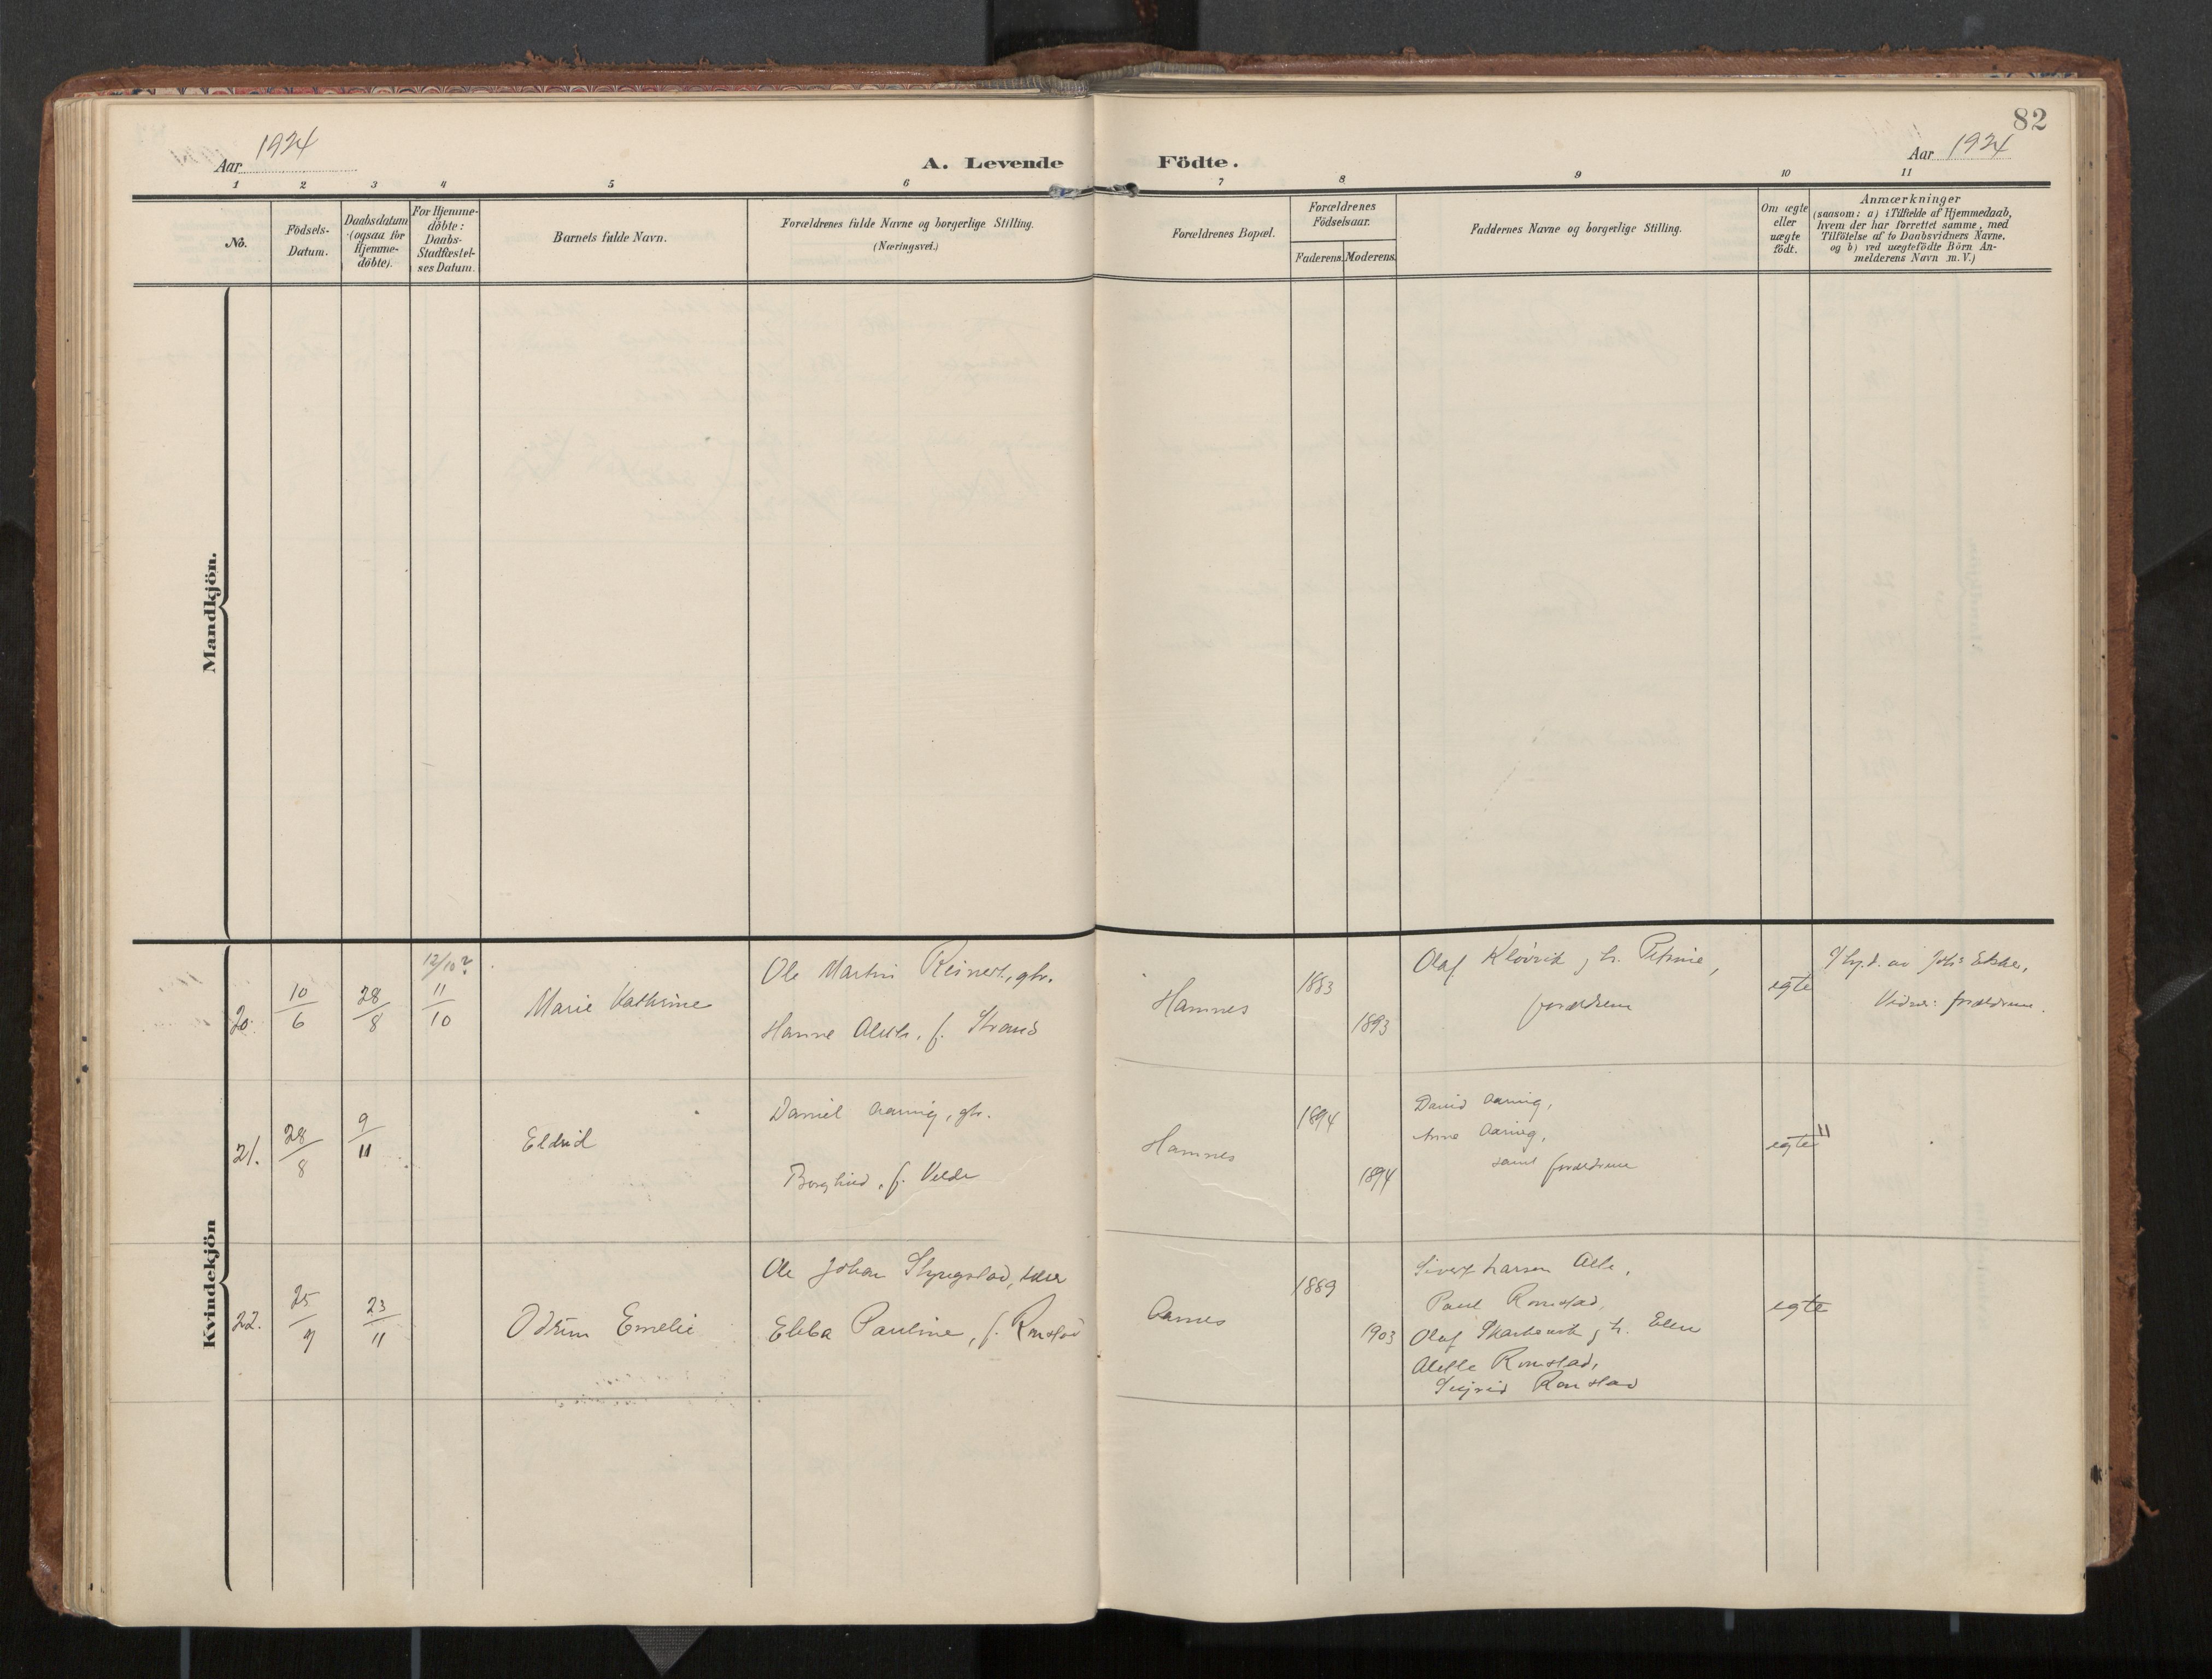 82
Aar 1924
A. Levende Födte.
Aar 1924
1 2 3 4 5 6 7 8 9 10 11
No.
Födsels-
Datum.
Daabsdatum
(ogsaa for
Hjemme-
döbte).
For Hjemme-
döbte:
Daabs-
Stadfæstel-
ses Datum.
Barnets fulde Navn.
Forældrenes fulde Navne og borgerlige Stilling.
(Næringsvei.)
Forældrenes Bopæl.
Forældrenes
Födselsaar.
Faderens. Moderens.
Faddernes Navne og borgerlige Stilling.
Om ægte
eller
uægte
födt.
Anmærkninger
(saasom: a) i Tilfælde af Hjemmedaab,
hvem der har forrettet samme, med
Tilföielse af to Daabsvidners Navne.
og b) ved uægtefödte Börn An-
melderens Navn m. V.)
Mandkjön.
Kvindekjön
20. 10/6 28/8 12/10? 11/10
Marie Kathrine
Ole Martin Reinert, gbr.
Hanne f. Strand
Hamnes
1883
1893
Olaf Kløvvik h. Petrine,
forældrene
egte
Hj.d. av Johs
Vidner: forældrene.
21. 28/8 9/11
Eldrid
Daniel Aarnig, gbr.
Borghild, f. Velde
Hamnes
1894
1894
David Aarnig,
Anne Aarnig,
samt forældrene
egte "
22. 25/9 23/11
Odrun Emelie
Ole Johan Skyrgstad,
Ebba Pauline, f. Romstad
Aarnes
1889
1903
Sivert Larsen
Paul Romstad,
Olaf h. Ellen
Alette Romstad,
Sigrid Romstad
egte